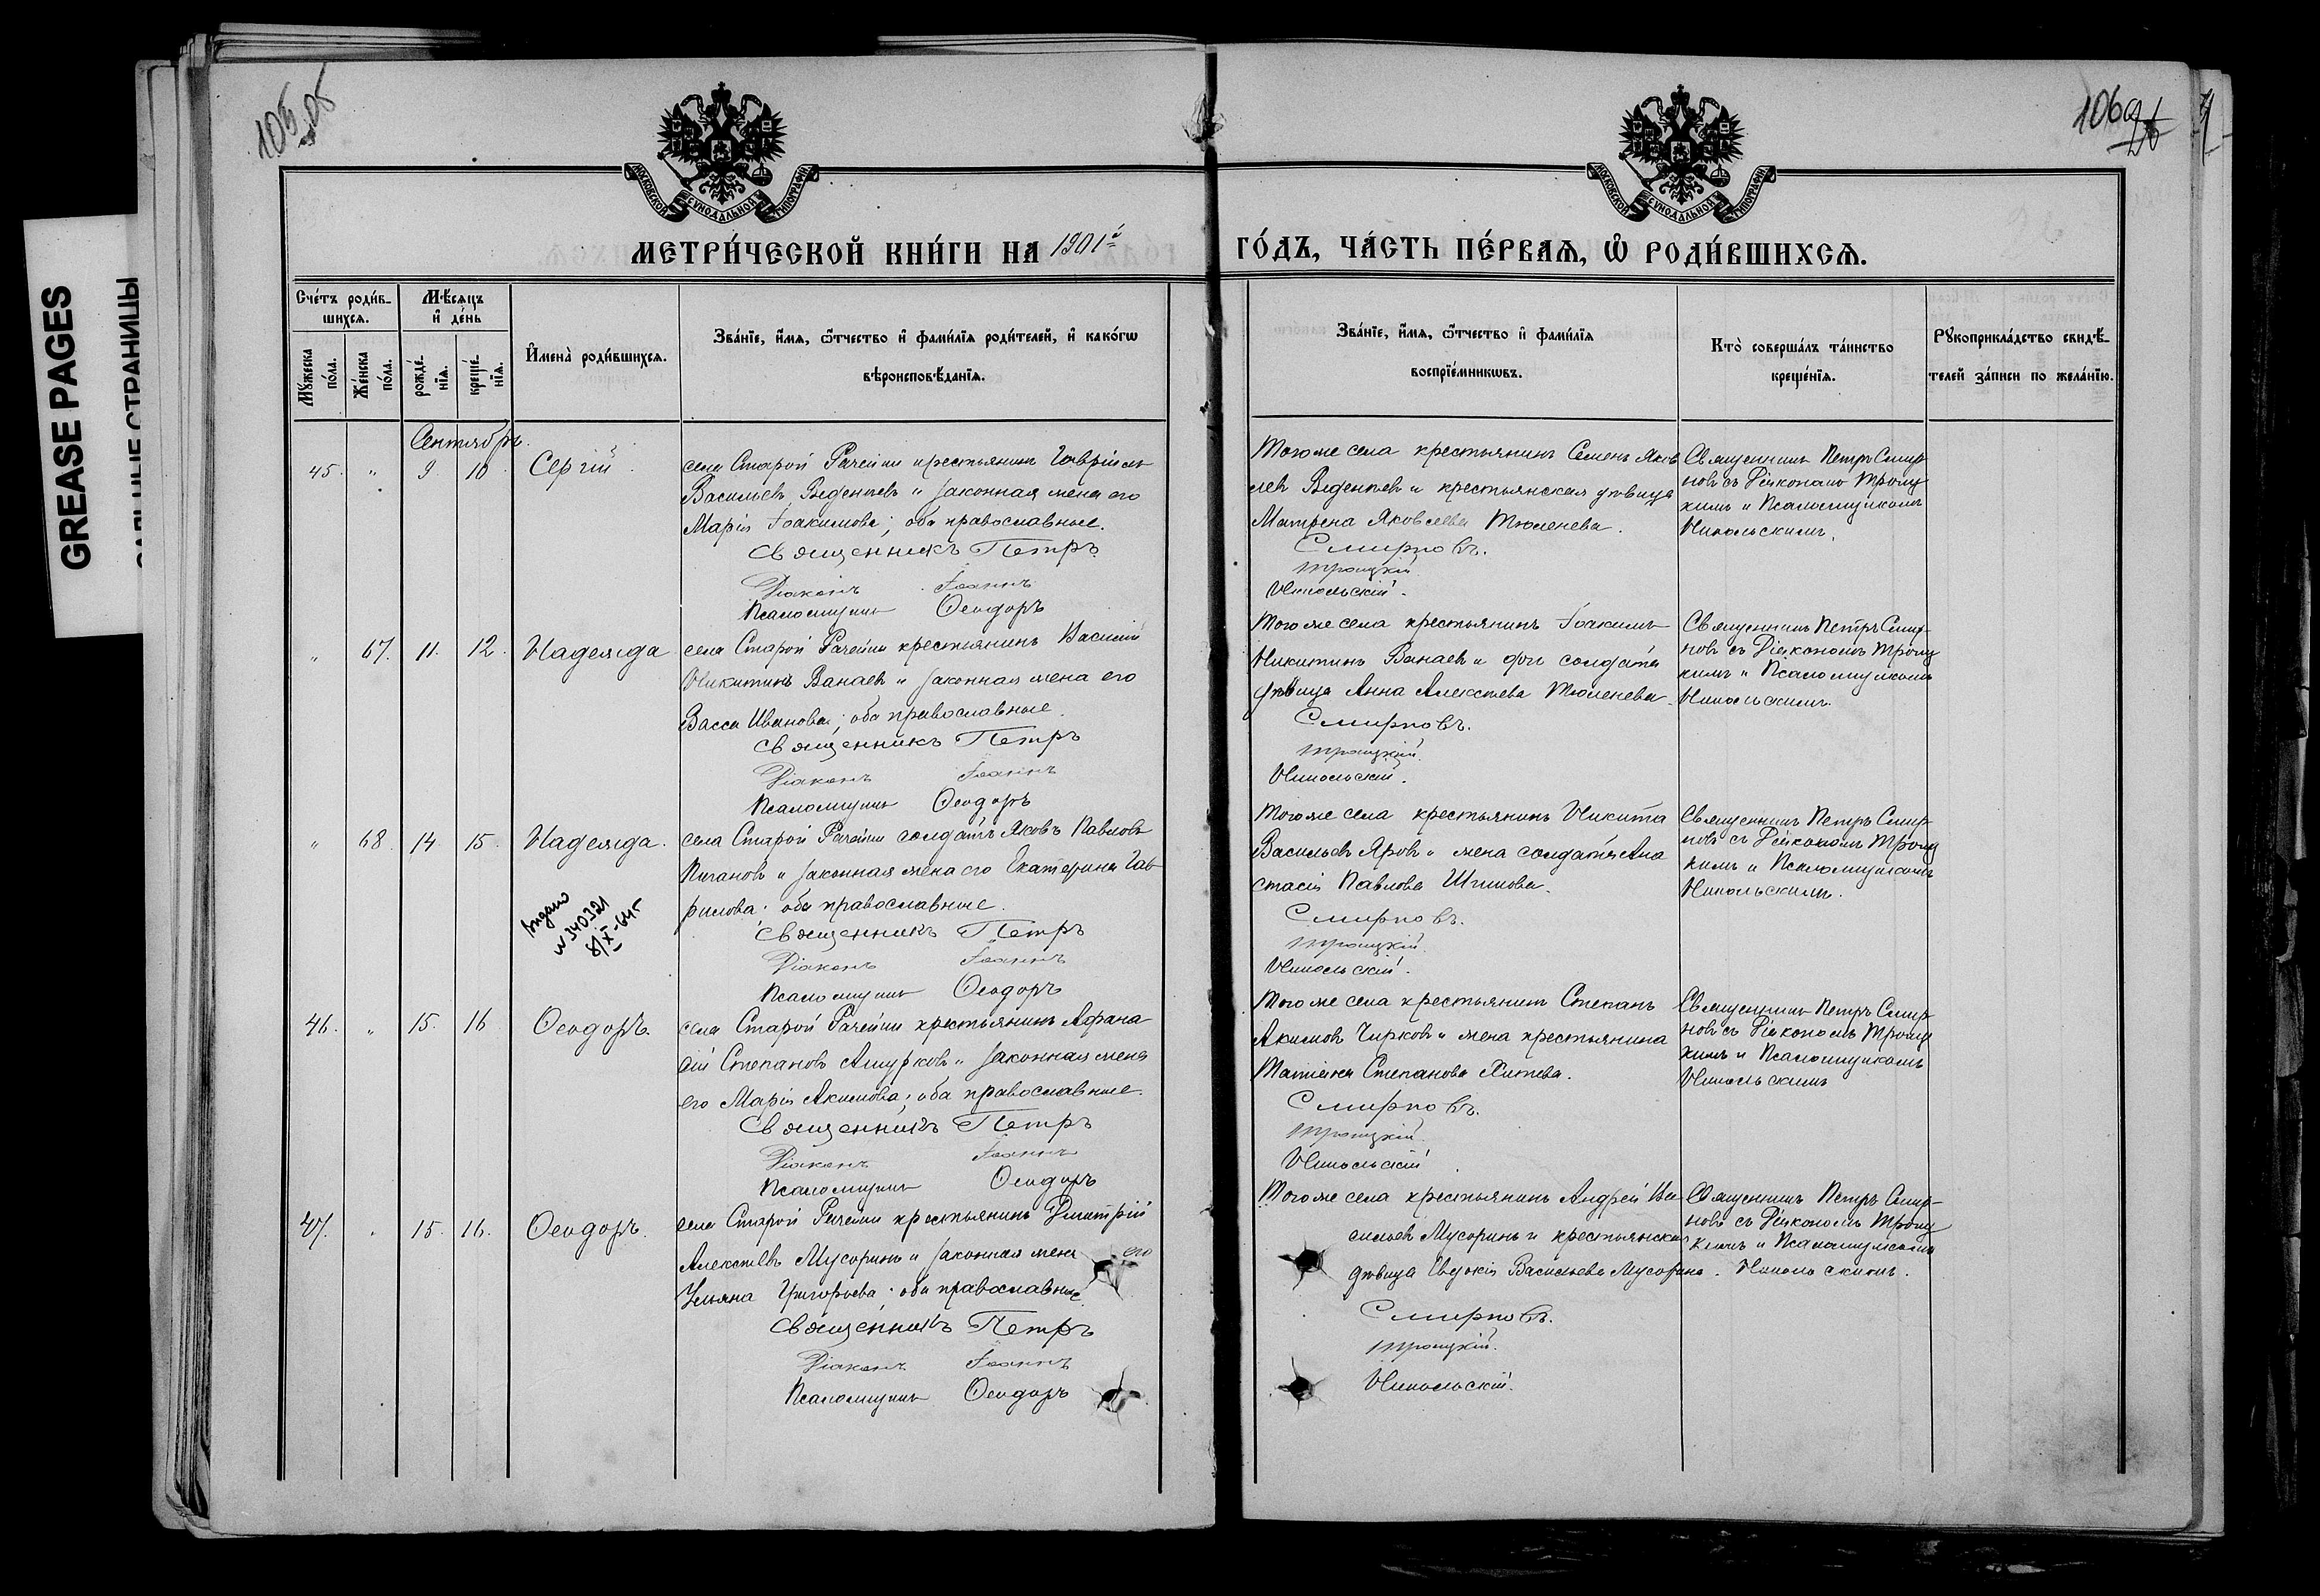 GREASE PAGES
105
106
МОСКОВСКОЙ СѴНОДАЛЬНОЙ ТИПОГРАФІИ
МОСКОВСКОЙ СѴНОДАЛЬНОЙ ТИПОГРАФІИ
МЕТРИ́ЧЕСКОЙ КНИ́ГИ НА 1901й
ГО́ДЪ, ЧА́СТЬ ПЕ́РВАѦ, Ѽ РОДИ́ВШИХСѦ.
Сче́тъ роди́в-
шихсѧ.
Мѣ́сѧцъ
и҆ де́нь
Мꙋ́жеска
по́ла.
Же́нска
по́ла.
рожде́-
нїѧ.
креще́-
нїѧ.
И҆мена̀ роди́вшихсѧ.
Зва́нїе, и҆́мѧ, ѻ҆́тчество и҆ фами́лїѧ роди́телей, и҆ како́гѡ
вѣроисповѣ́данїѧ.
Зва́нїе, и҆́мѧ, ѻ҆́тчество и҆ фами́лїѧ
воспрїе́мникѡвъ.
Кто̀ соверша́лъ та́инство
креще́нїѧ.
Рꙋкоприкла́дство свидѣ́-
телей за́писи по жела́нїю.
Сентябрь.
45. " 9 10 Сергій.
села Старой Рачейки крестьянинъ Гавріилъ
Васильевъ Веденѣевъ и законная жена его
Марія Іоакимова; оба православные.
Священникъ Петръ
Діаконъ Іоаннъ
Псаломщикъ Ѳеодоръ
Того же села крестьянинъ Семенъ Яков
левъ Веденѣевъ и крестьянская дѣвица
Матрена Яковлева Тюленева.
Смирновъ.
Троицкій
Никольскій.
Священникъ Петръ Смир-
новъ съ Діакономъ Троиц
кимъ и Псаломщикомъ
Никольскимъ.
" 67. 11. 12. Надежда
села Старой Рачейки крестьянинъ Василій
Никитинъ Ванаевъ и законная жена его
Васса Иванова; оба православные.
Священникъ Петръ
Діаконъ Іоаннъ
Псаломщикъ Ѳеодоръ
Того же села крестьянинъ Іоакимъ
Никитинъ Ванаевъ и дочь солдата
дѣвица Анна Алексѣева Тюленева.
Смирновъ.
Троицкій.
Никольскій.
Священникъ Петръ Смир-
новъ съ Діакономъ Троиц
кимъ и Псаломщикомъ
Никольскимъ.
" 68. 14. 15. Надежда.
№ 340321
8/X-64г
села Старой Рачейки солдатъ Яковъ Павловъ
и законная жена его Екатерина Гав
рилова; оба православные.
Священникъ Петръ
Діаконъ Іоаннъ
Псаломщикъ Ѳеодоръ
Того же села крестьянинъ Никита
Васильевъ Яровъ и жена солдата Ана
стасія Павлова
Смирновъ.
Троицкій.
Никольскій.
Священникъ Петръ Смир-
новъ съ Діакономъ Троиц
кимъ и Псаломщикомъ
Никольскимъ.
46. " 15. 16 Ѳеодоръ.
села Старой Рачейки крестьянинъ Афана
сій Степановъ Ашурковъ и законная жена
его Марія Акимова; оба православные.
Священникъ Петръ
Діаконъ Іоаннъ
Псаломщикъ Ѳеодоръ
Того же села крестьянинъ Степанъ
Акимовъ Чирковъ и жена крестьянина
Татіана Степанова
Смирновъ.
Троицкій.
Никольскій
Священникъ Петръ Смир-
новъ съ Діакономъ Троиц
кимъ и Псаломщикомъ
Никольскимъ
47. " 15. 16. Ѳеодоръ.
села Старой Рачейки крестьянинъ Димитрій
Алексѣевъ Мусоринъ и законная жена его
Ульяна Григорьева; оба православные.
Священникъ Петръ
Діаконъ Іоаннъ
Псаломщикъ Ѳеодоръ
Того же села крестьянинъ Андрей Ва
сильевъ Мусоринъ и крестьянская
дѣвица Евдокія Васильева Мусорина.
Смирновъ.
Троицкій.
Никольскій.
Священникъ Петръ Смир-
новъ съ Діакономъ Троиц
кимъ и Псаломщикомъ
Никольскимъ.